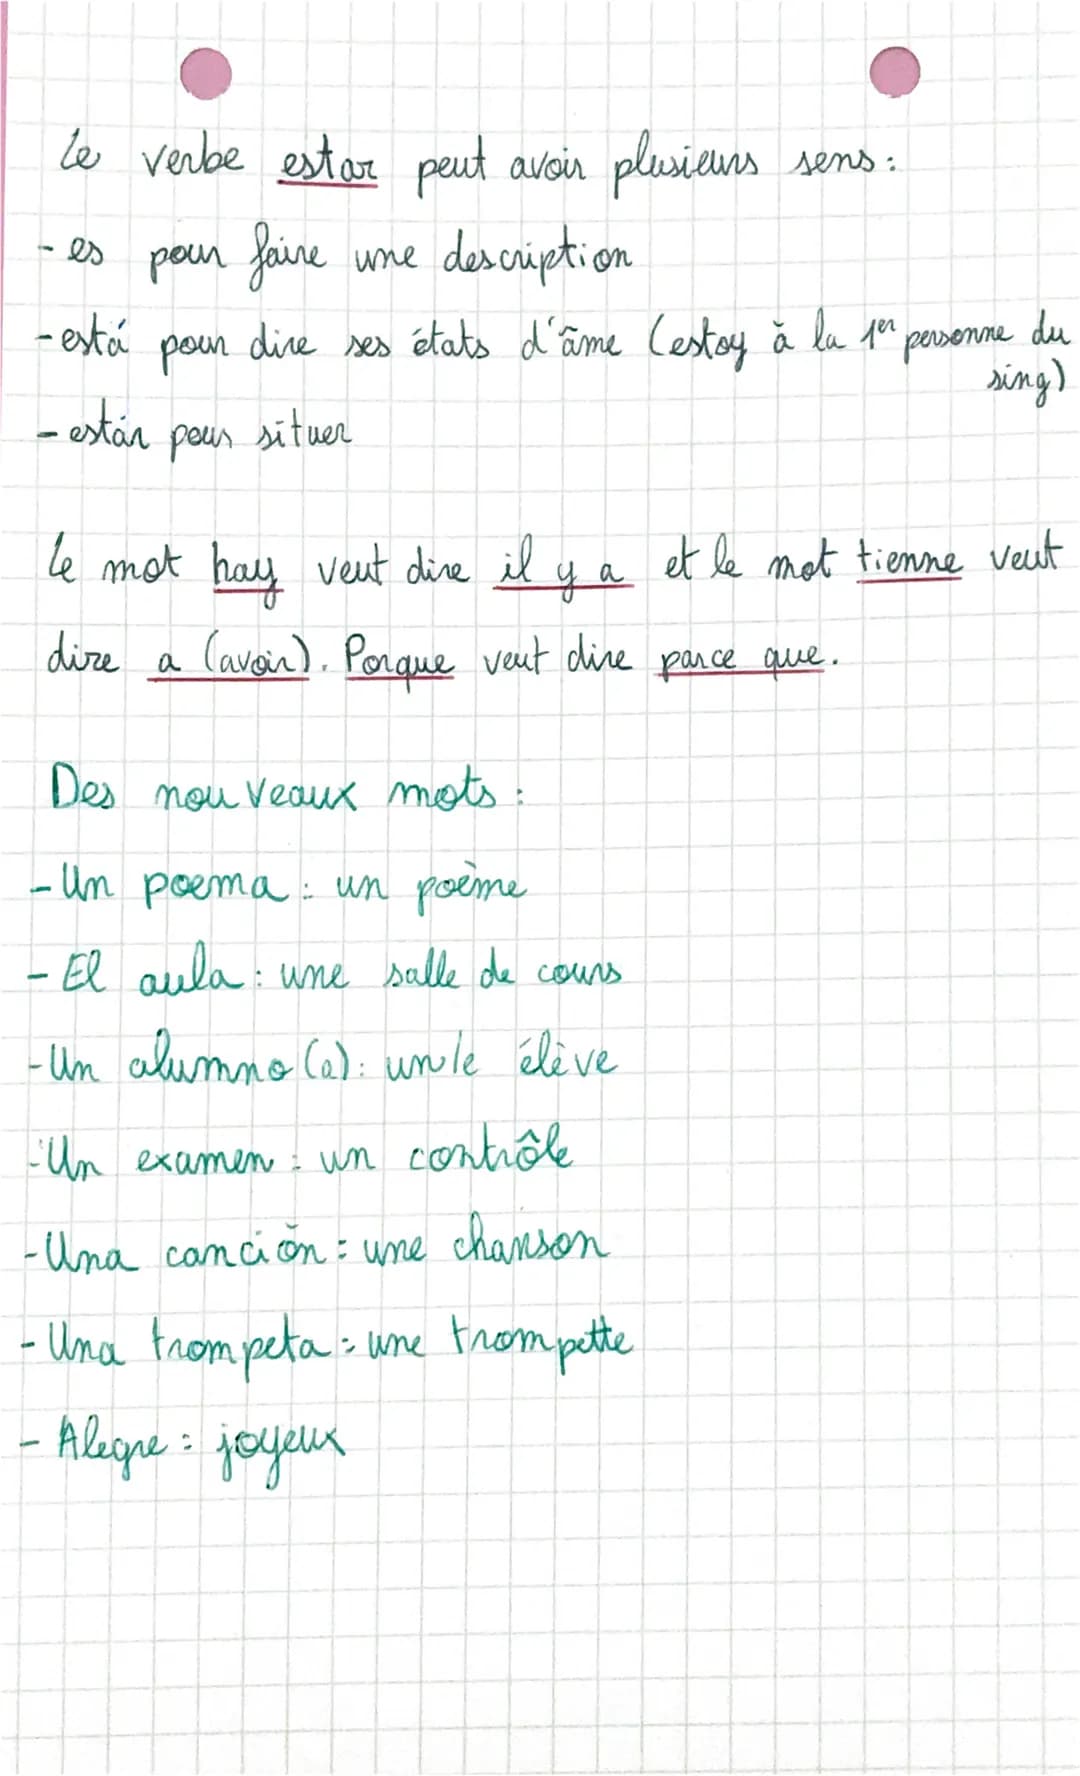 Le verbe estar peut avoir plusieurs sens :
- es pour faire une description
- está pour dire ses états d'âme (estoy à la 1er personne du
sing)
- están pour situer
Le mot hay veut dire il y a et le mot tienne veut
dire a (avoir). Porque veut dire parce que.
Des nouveaux mots :
- Un poema : un poème
- El aula : une salle de cours
- Un alumno (a) : un/e élève
- Un examen : un contrôle
- Una canción : une chanson
- Una trompeta : une trompette
- Alegre : joyeux